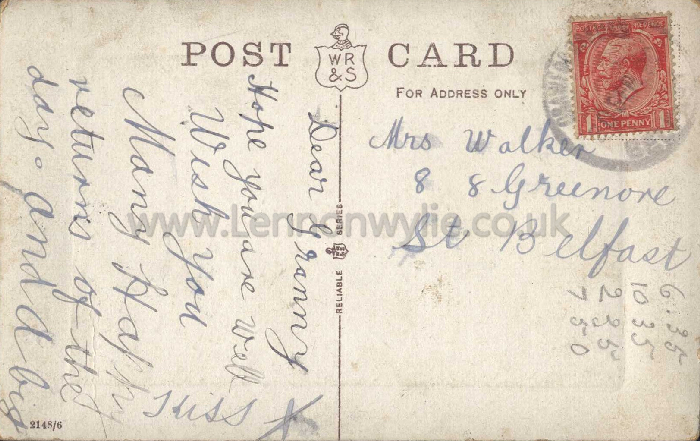 POST CARD
WR
&S
FOR ADDRESS ONLY
ONE PENNY
1 1
Dear Granny
Hope you are well
Wish you
Many Happy
returns of the
day. and d big
Kiss X
Mrs Walker
8 8 Greenore
St Belfast
6.35
10 35
2 35
7 50
RELIABLE SERIES
2148/6
www.Lennonwylie.co.uk